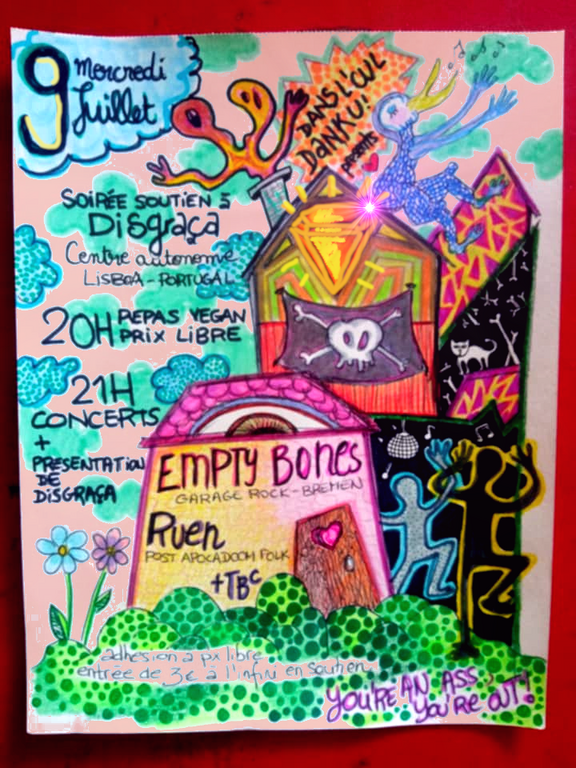 9 mercredi
Juillet
DANS L'CUL
DANKÜ!
presents
SOIRÉE SOUTIEN à
DISgRAÇA
Centre autonome
LISBOA - PORTUGAL
20H REPAS VEGAN
PRIX LIBRE
21H
CONCERTS
+
PRESENTATION
DE
DISGRAÇA
EMPTY BONES
GARAGE ROCK - BREMEN
Ruen
POST APOCADOOM FOLK
+TBC
adhésion à px libre
entrée de 3€ à l'infini en soutien
YOU'RE AN ASS,
YOU'RE OUT!